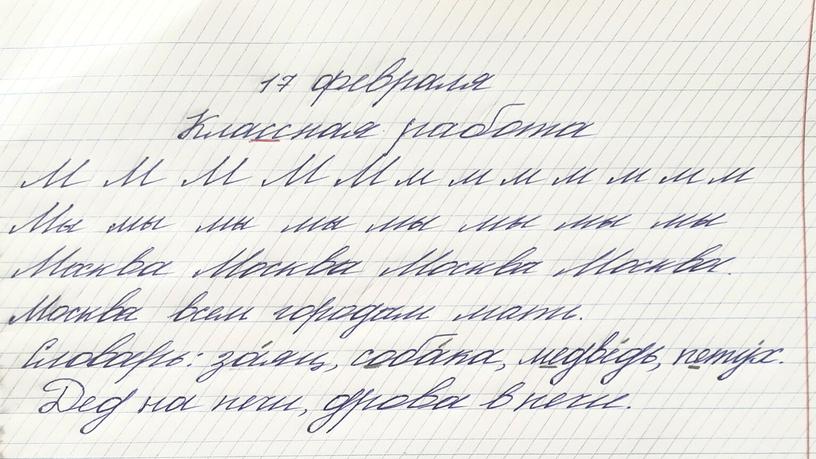 17 февраля
Классная работа
М М М М М м м м м м м м
Мы мы мы мы мы мы мы мы
Москва Москва Москва Москва.
Москва всем городам мать.
Словарь: за́яц, соба́ка, медве́дь, пету́х.
Дед на печи, дрова в печи.